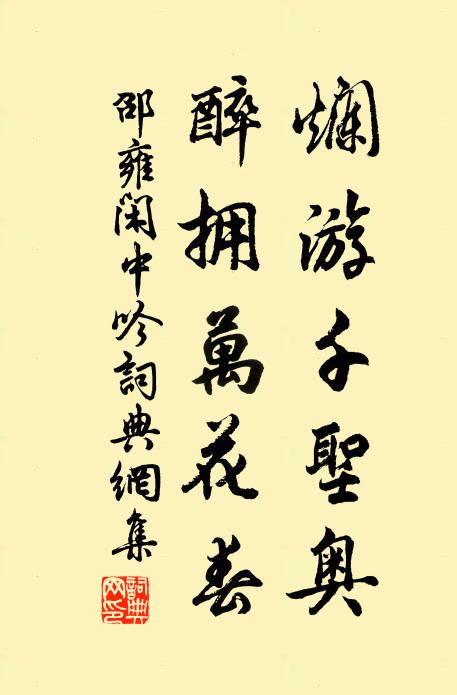 爛游千聖奧
醉拥萬花春
邵雍閑中吟詞典網集
詞典
网印